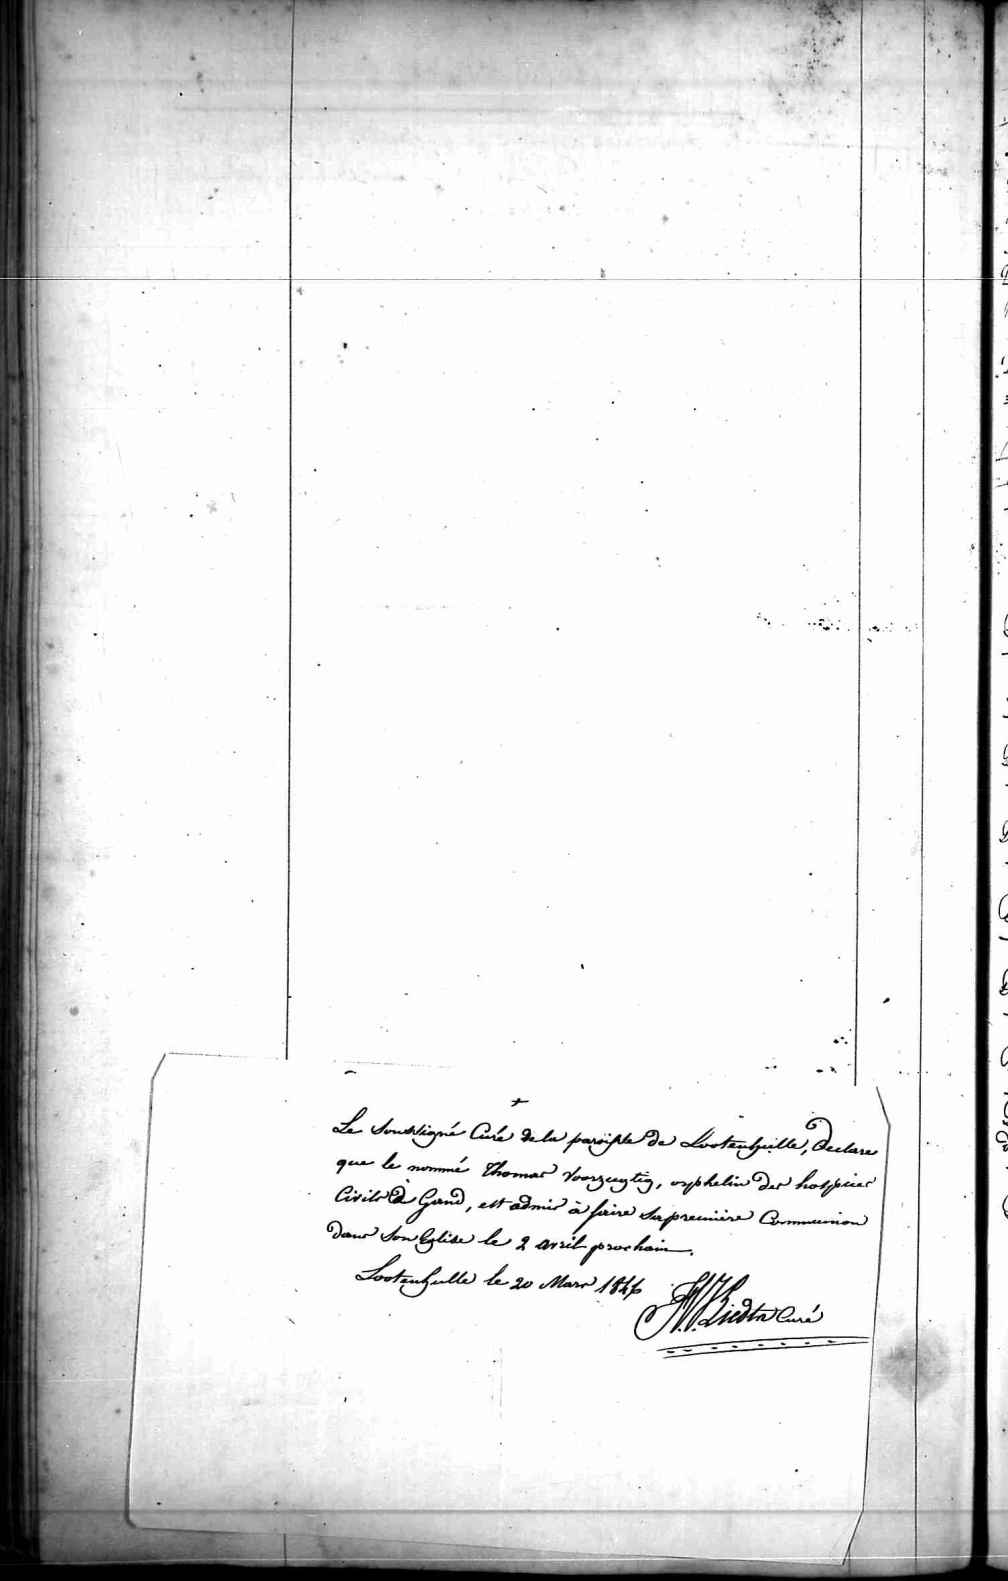 +
Le Soussigné Curé de la paroisse de Lootenhulle, Declare
que le nommé Thomas Voorzuytig, orphelin des hospices
Civils à Gand, est admis à faire sa première Communion
dans son Eglise le 2 avril prochain.
Lootenhulle le 20 Mars 1846
Curé